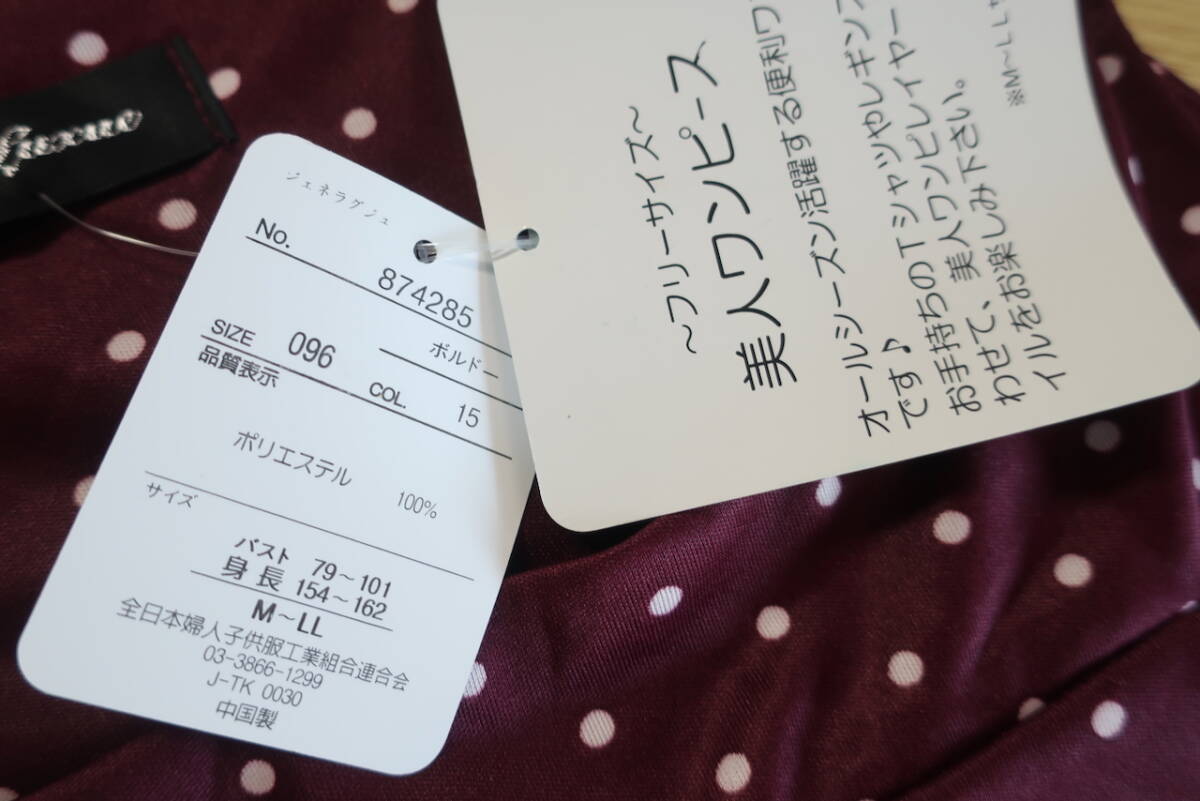 ジェネラグジュ
No.
874285
ボルドー
SIZE 096 COL. 15
品質表示
ポリエステル 100%
サイズ
バスト 79～101
身長 154～162
M～LL
全日本婦人子供服工業組合連合会
03-3866-1299
J-TK 0030
中国製
～フリーサイズ～
美人ワンピース
オールシーズン活躍する便利ワ
です♪
お手持ちのTシャツやレギン
わせて、美人ワンピレイヤー
イルをお楽しみ下さい。
※M～LL